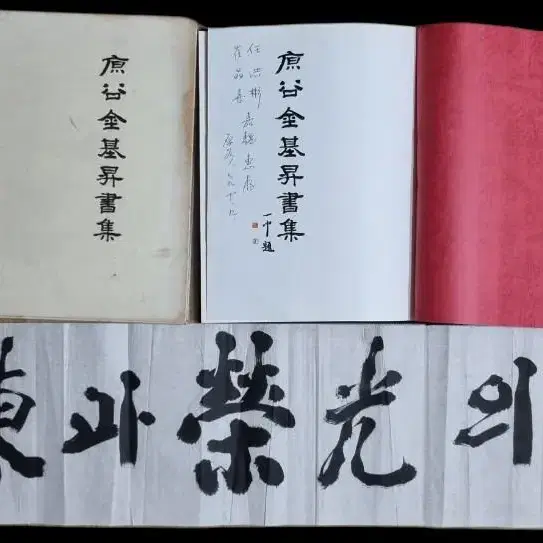 原谷金基昇書集
原谷金基昇書集
一中題
任洪彬
惠存
과榮光의